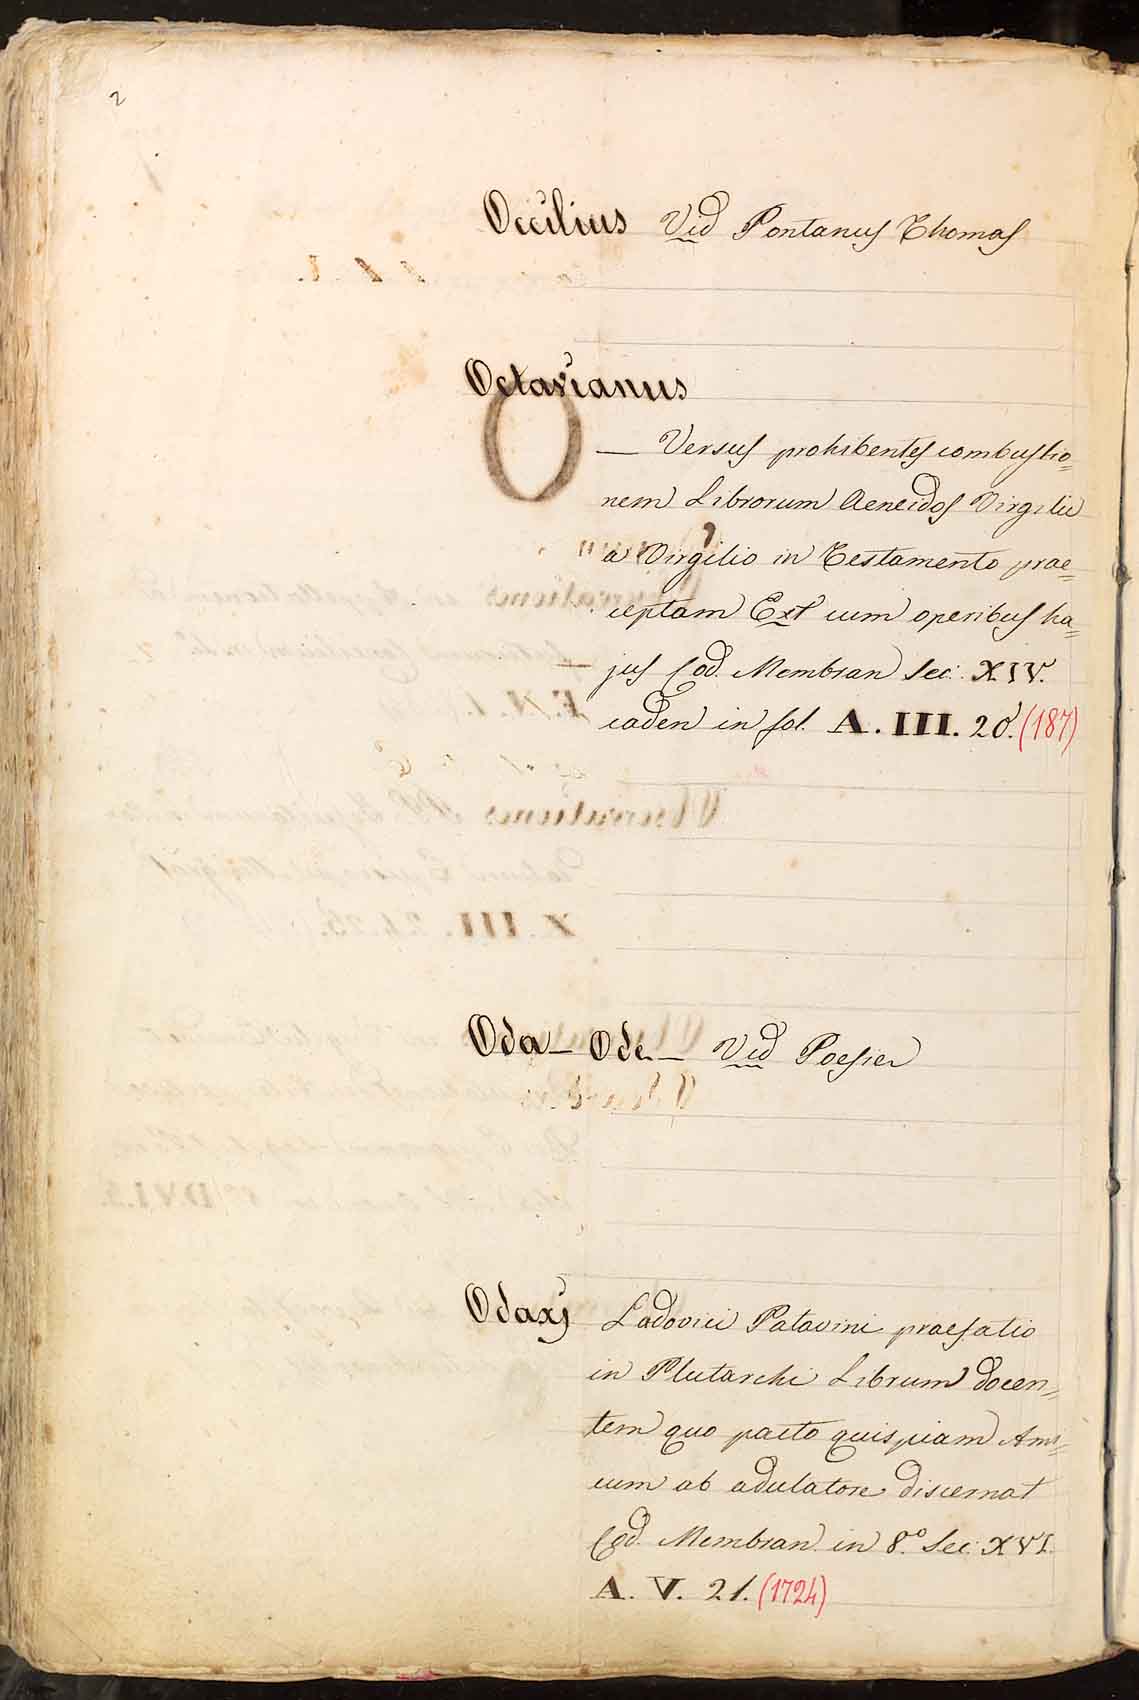 2
Occilius Vid Pontanus Thomas
Octavianus
O
— Versus prohibentes combustio=
nem Librorum Aeneidos Virgilii
a Virgilio in Testamento prae=
ceptam Ext cum operibus hu=
jus Cod. Membran Sec. XIV.
eaden in fol. A. III. 20. (187)
Oda — Ode — Vid Poesier
Odaxj Ladovici Patavini praefatio
in Plutarchi Librum docen=
tem quo pacto quispiam Ami=
cum ab adulatore discernat
Cod. Membran. in 8.º Sec. XVI.
A. V. 21. (1724)